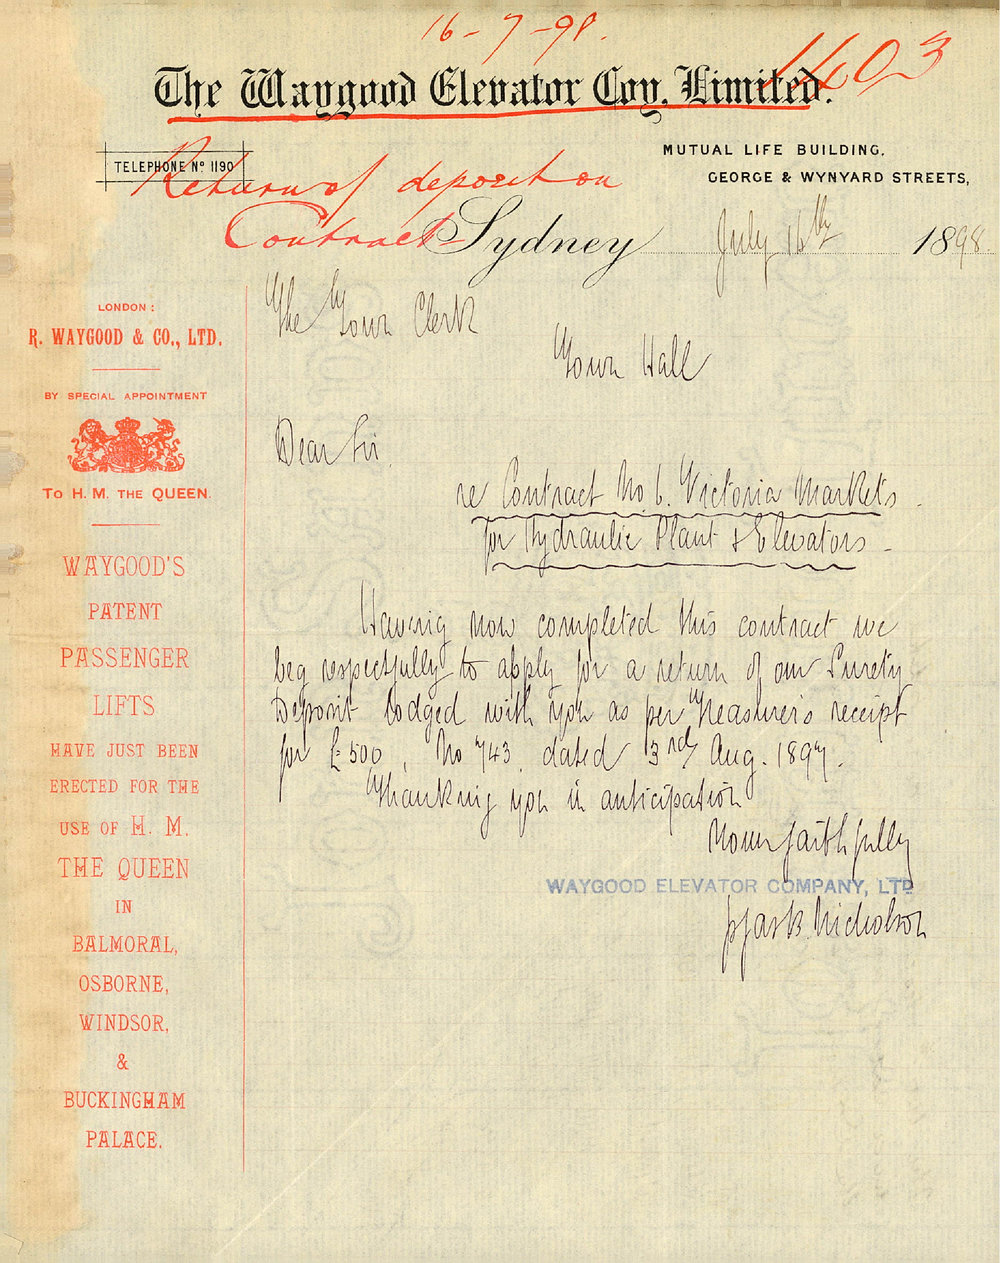 16-7-98.
1403
The Waygood Elevator Coy, Limited.
TELEPHONE No 1190
MUTUAL LIFE BUILDING,
GEORGE & WYNYARD STREETS,
Return of deposit on
Contract
Sydney July 16th 1898.
LONDON:
R. WAYGOOD & CO., LTD.
BY SPECIAL APPOINTMENT
TO H. M. THE QUEEN.
WAYGOOD'S
PATENT
PASSENGER
LIFTS
HAVE JUST BEEN
ERECTED FOR THE
USE OF H. M.
THE QUEEN
IN
BALMORAL,
OSBORNE,
WINDSOR,
&
BUCKINGHAM
PALACE.
The Town Clerk
Town Hall
Dear Sir,
re Contract No 6. Victoria Markets.
for Hydraulic Plant & Elevators -
Having now completed this contract we
beg respectfully to apply for a return of our Surety
Deposit lodged with you as per Treasurer's receipt
for £500, No 743, dated 3rd Aug. 1897.
Thanking you in anticipation
Yours faithfully
WAYGOOD ELEVATOR COMPANY, LTD
Nicholson